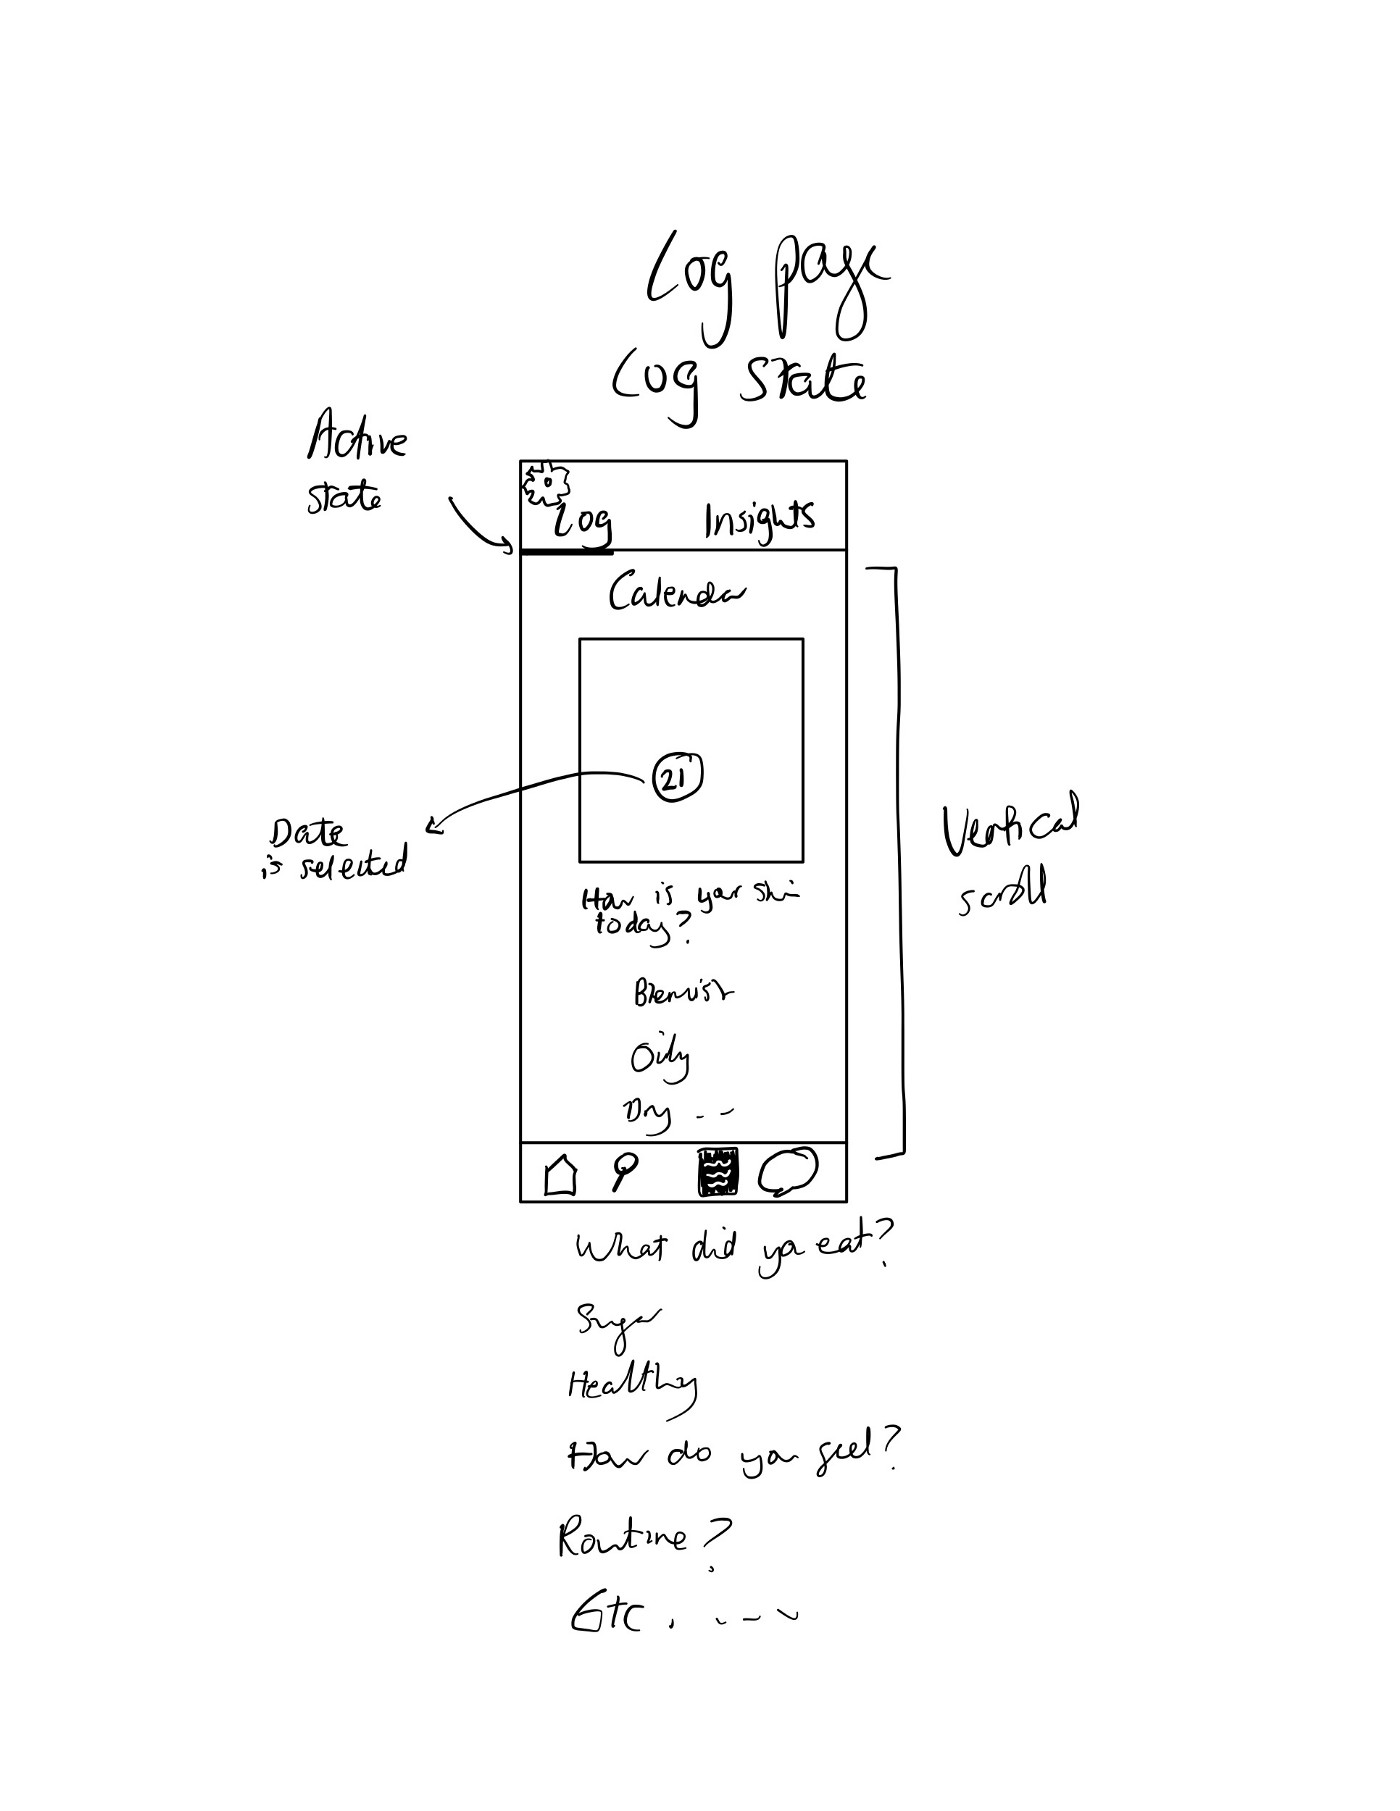 Log page
Log state
Active
state
Log Insights
Calendar
21
Date
is selected
Vertical
scroll
How is your skin
today?
Blemish
Oily
Dry - -
What did you eat?
Sugar
Healthy
How do you feel?
Routine?
Etc. - - -